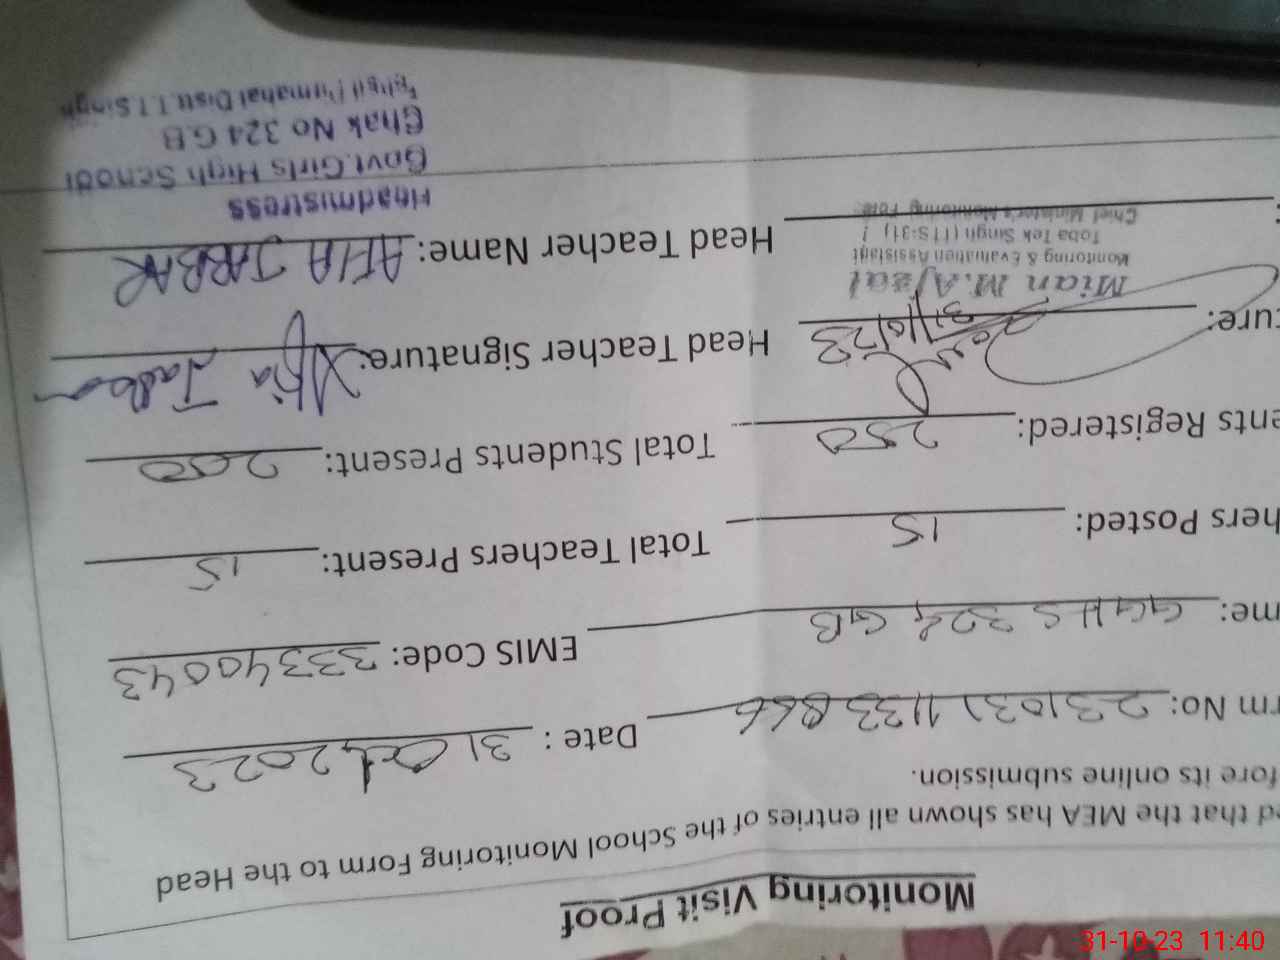 Monitoring Visit Proof
ed that the MEA has shown all entries of the School Monitoring Form to the Head
fore its online submission.
rm No: 231031 1133 B66 Date : 31 Oct, 2023
me: GGHS 324 GB EMIS Code: 33340043
hers Posted: 15 Total Teachers Present: 15
ents Registered: 250 Total Students Present: 200
ure: 31/10/23 Head Teacher Signature: Afia Jabbar
Mian M.Afzal
Monitoring & Evaluation Assistant
Toba Tek Singh (TTS-31)
Chief Minister's Monitoring Force
Head Teacher Name: AFIA JABBAR
Headmistress
Govt.Girls High School
Chak No 324 G.B
Tehsil Pirmahal Distt.T.T.Singh
31-10-23 11:40